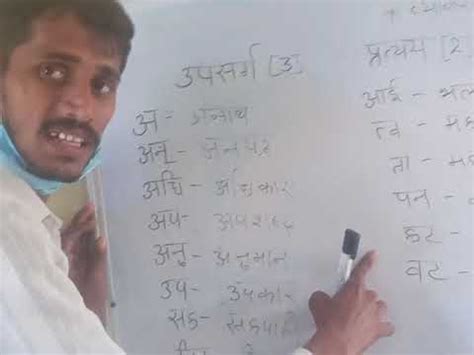 उपसर्ग [3]
अ - अनाथ
अन् - अनपढ़
अधि - अधिकार
अप - अपशब्द
अनु - अनुमान
उप - उपका-
सह - सहपा
प्रत्यय [2
आई - भल
त्व - मह
ता - म
पन -
हट -
वट -